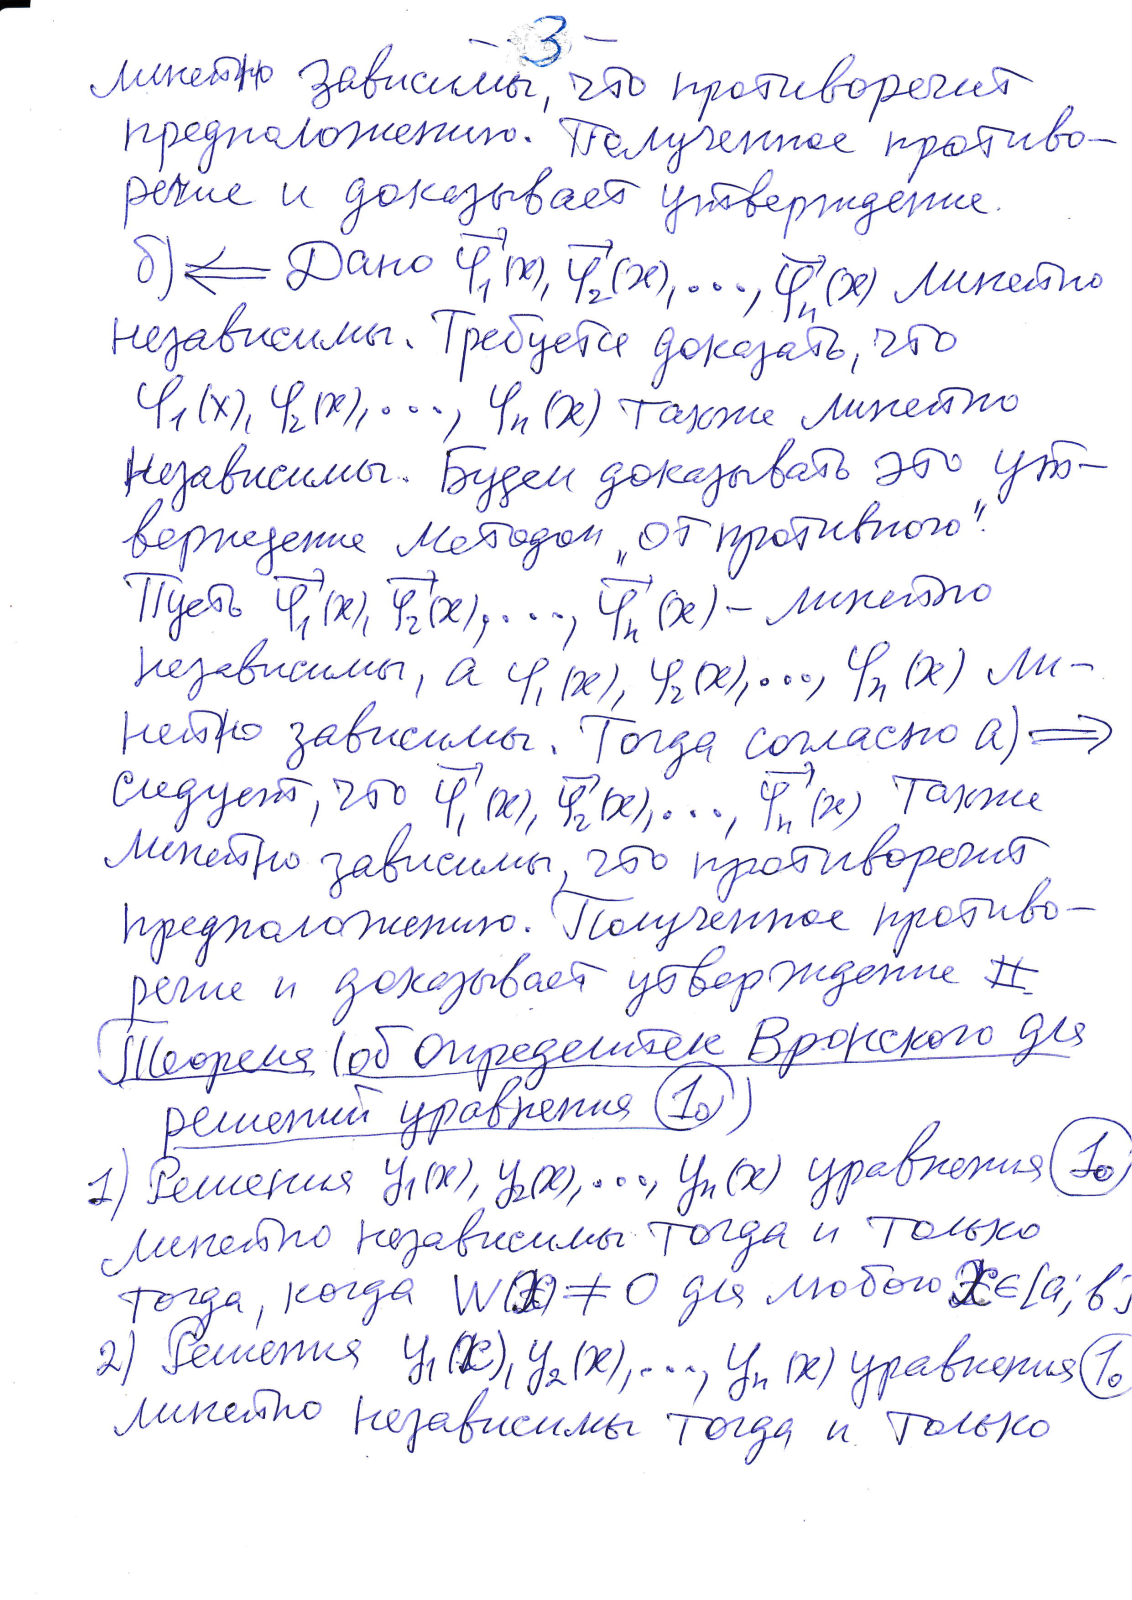 - 3 -
линейно зависимы, что противоречит
предположению. Полученное противо-
речие и доказывает утверждение.
б) ⟸ Дано φ⃗₁(x), φ⃗₂(x), ..., φ⃗ₙ(x) линейно
независимы. Требуется доказать, что
φ₁(x), φ₂(x), ..., φₙ(x) также линейно
независимы. Будем доказывать это ут-
верждение методом „от противного".
Пусть φ⃗₁(x), φ⃗₂(x), ..., φ⃗ₙ(x) – линейно
независимы, а φ₁(x), φ₂(x), ..., φₙ(x) ли-
нейно зависимы. Тогда согласно а) ⟹
следует, что φ⃗₁(x), φ⃗₂(x), ..., φ⃗ₙ(x) также
линейно зависимы, что противоречит
предположению. Полученное противо-
речие и доказывает утверждение II
Теорема (об определителе Вронского для
решений уравнения (1₀))
1) Решения y₁(x), y₂(x), ..., yₙ(x) уравнения (1₀)
линейно независимы тогда и только
тогда, когда W(x) ≠ 0 для любого x∈[a; b]
2) Решения y₁(x), y₂(x), ..., yₙ(x) уравнения (1₀)
линейно независимы тогда и только